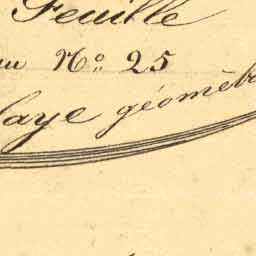 Feuille
au No. 25
laye géomètr